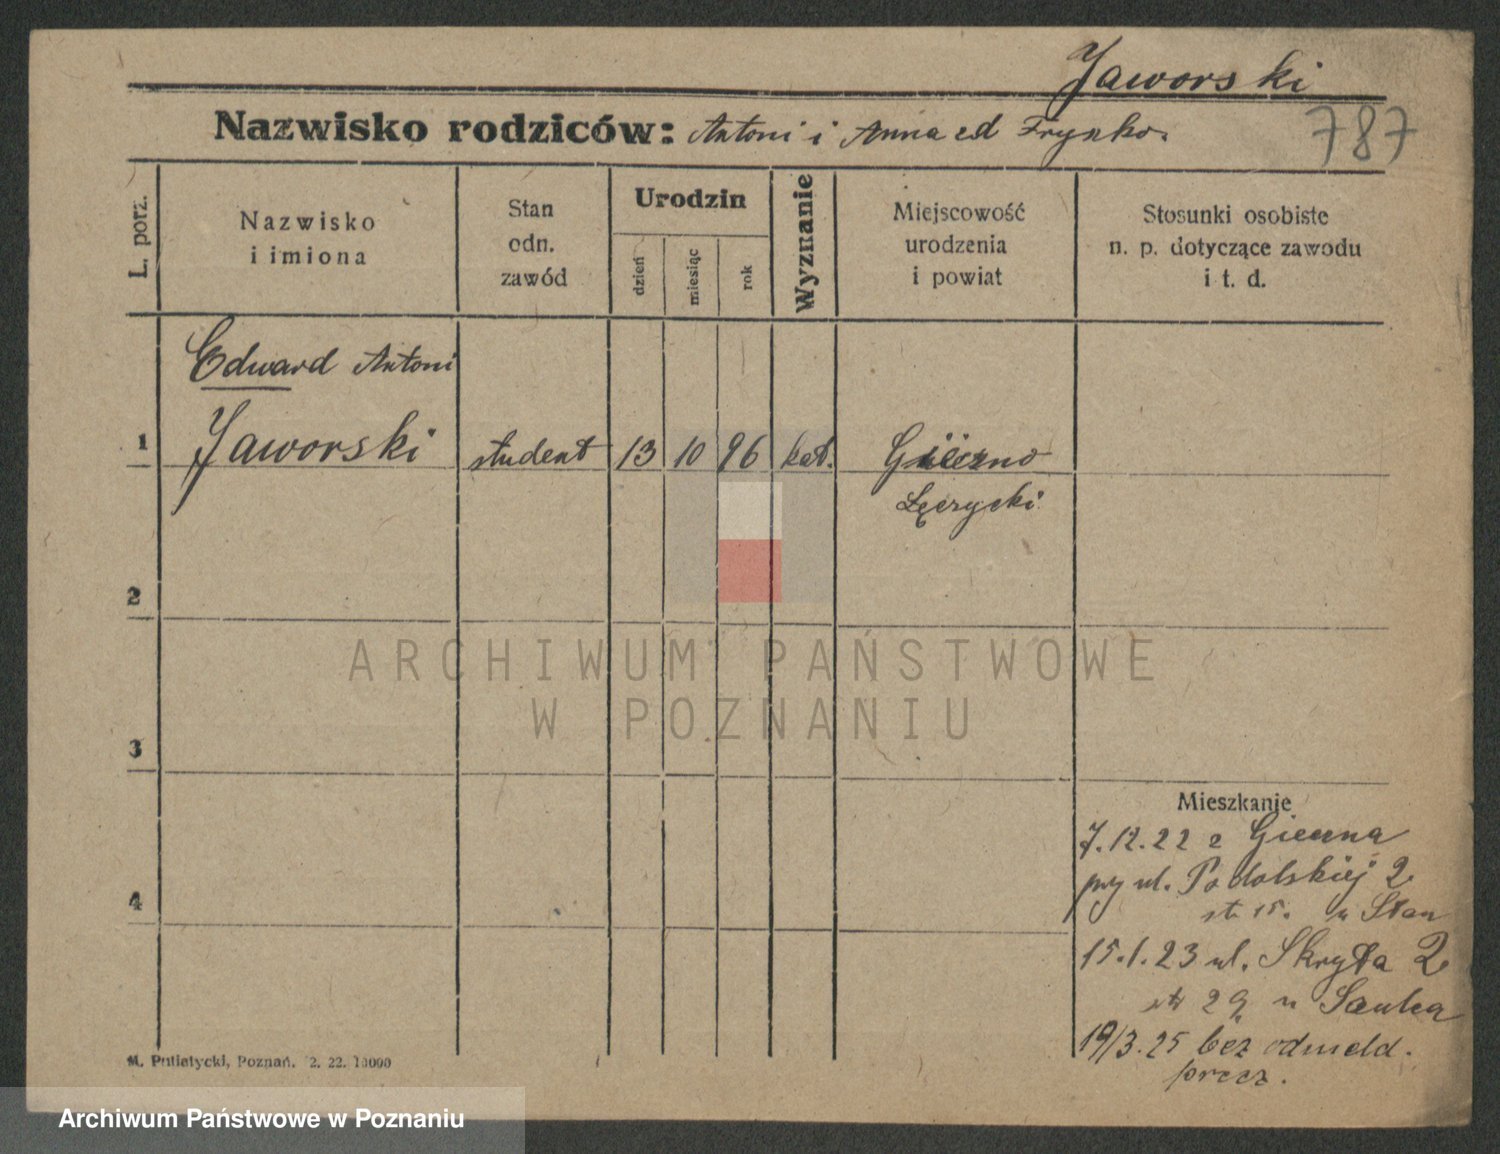 Jaworski
Nazwisko rodziców: Antoni i Anna zd Frynko.
787
L. porz.
Nazwisko
i imiona
Stan
odn.
zawód
Urodzin
dzień
miesiąc
rok
Wyznanie
Miejscowość
urodzenia
i powiat
Stosunki osobiste
n. p. dotyczące zawodu
i t. d.
Edward Antoni
1 Jaworski student 13 10 96 kat. Gieczno
Łęczycki
2
3
4
Mieszkanie
7.12.22 z Gieczna
przy ul. Podolskiej 2
st. 15. u Stan
15.1.23 ul. Skryta 2
str 29 u
19/3.25 bez odmeld.
precz.
M. Putiatycki, Poznań. 2. 22. 10000
ARCHIWUM PAŃSTWOWE
W POZNANIU
Archiwum Państwowe w Poznaniu